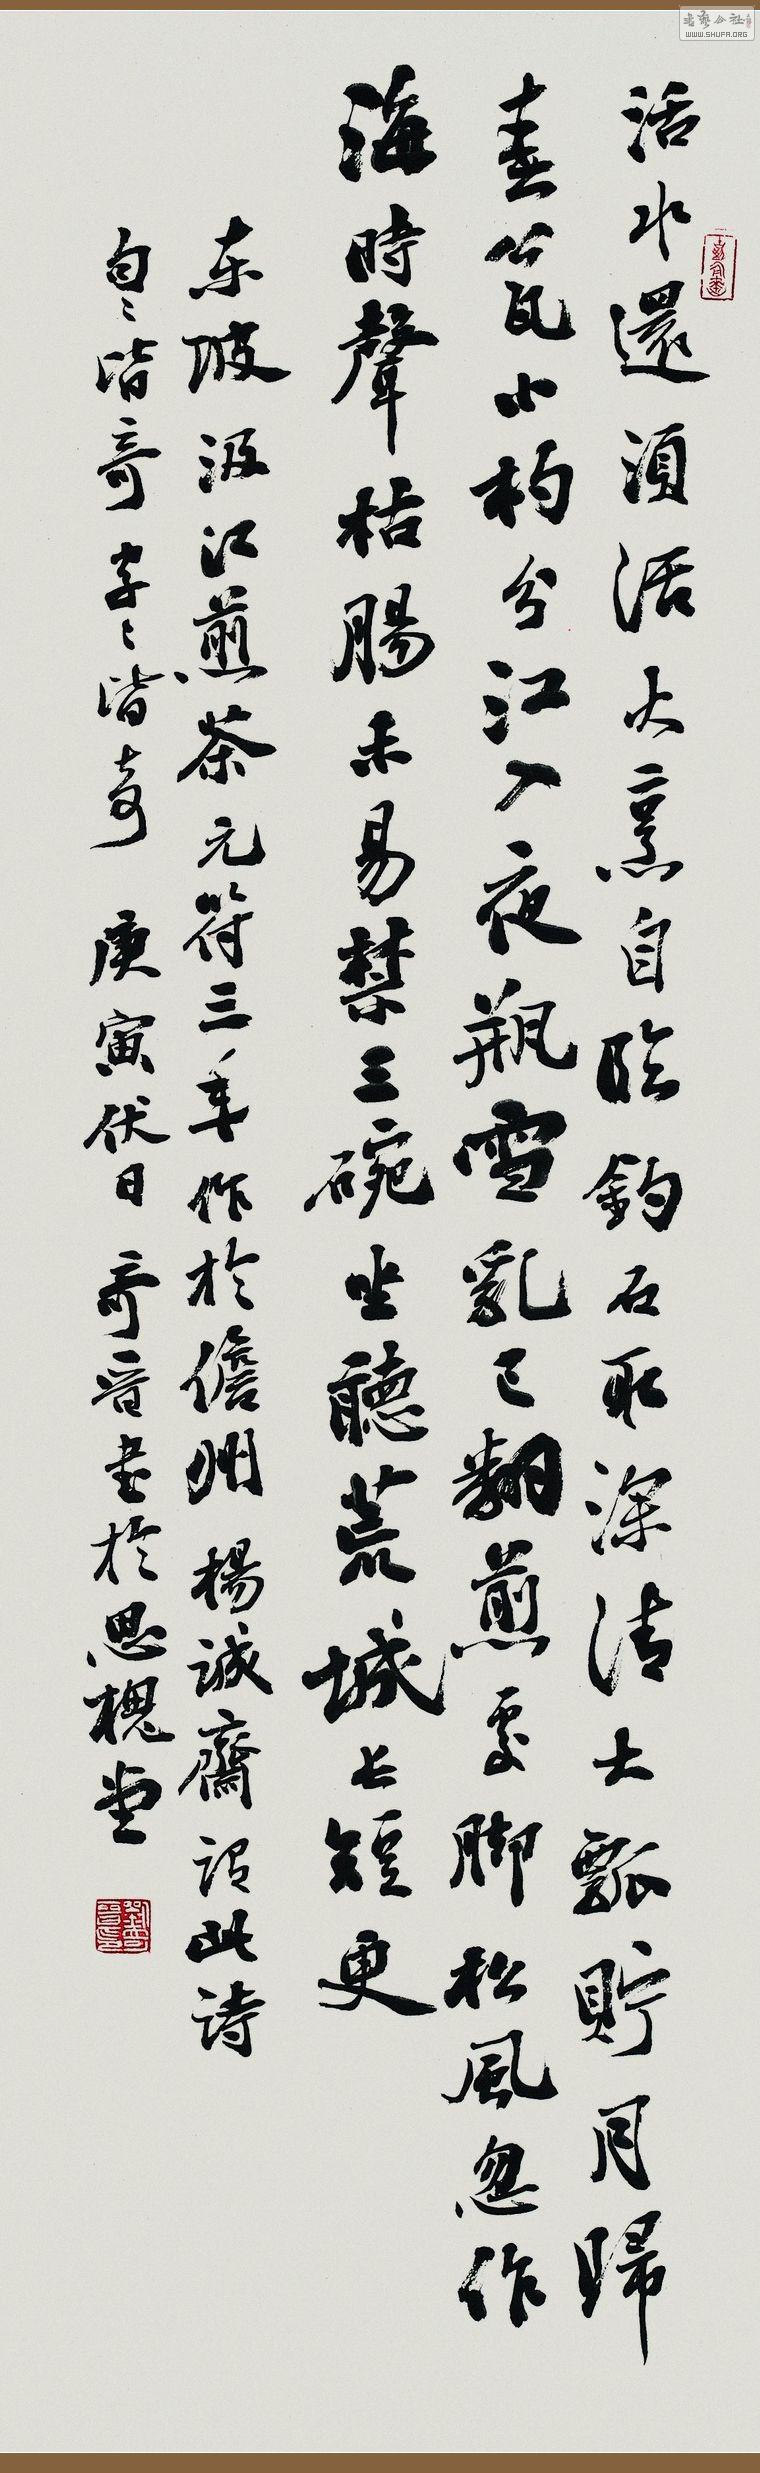 活水還須活火烹自臨釣石取深清大瓢貯月歸
春瓮小杓分江入夜瓶雪乳已翻煎處脚松風忽作
瀉時聲枯腸未易禁三碗坐聽荒城長短更
东坡汲江煎茶元符三年作於儋州楊誠齋謂此詩
句〻皆奇字〻皆奇 庚寅伏日奇晋書於思槐堂
書藝公社
WWW.SHUFA.ORG